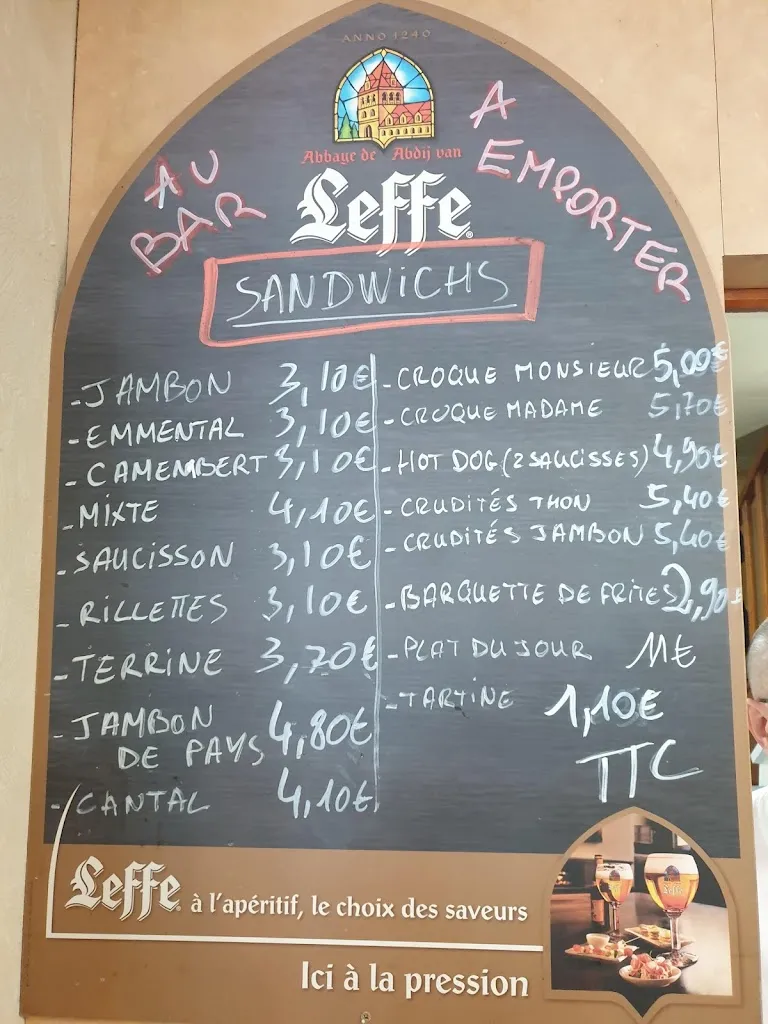 ANNO 1240
Abbaye de Abdij van
Leffe
AU
BAR
A
EMPORTER
SANDWiCHS
- JAMBON 3,10€
- EMMENTAL 3,10€
- CAMEMBERT 3,10€
- MiXTE 4,10€
- SAUCISSON 3,10€
- RiLLETTES 3,10€
- TERRiNE 3,70€
- JAMBON
DE PAYS 4,80€
- CANTAL 4,10€
- CROQUE MONSIEUR 5,00€
- CROQUE MADAME 5,70€
- HOT DOG (2 SAUCISSES) 4,90€
- CRUDITÉS THON 5,40€
- CRUDITÉS JAMBON 5,40€
- BARQUETTE DE FRITES 2,90€
- PLAT DU JOUR 11€
- TARTINE 1,10€
TTC
Leffe à l'apéritif, le choix des saveurs
Ici à la pression